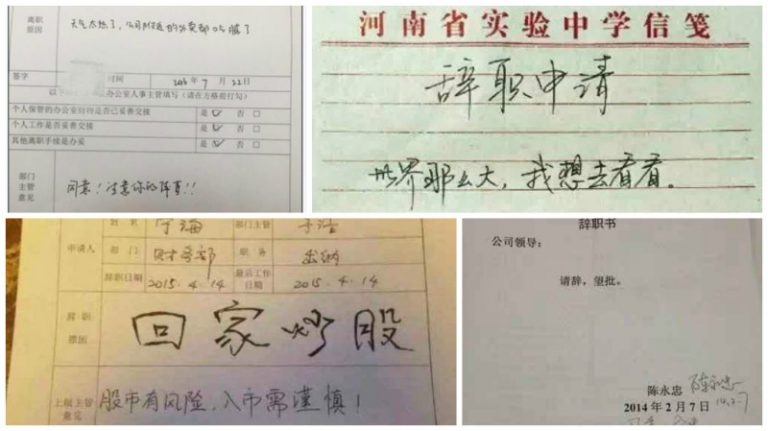 离职
原因
天气太热了，公司附近的外卖都吃腻了
签字
时间
2016年7月22日
办公室人事主管填写（请在方格前打勾）
个人保管的办公室财物是否已妥善交接 是 否
个人工作是否妥善交接 是 否
其他离职手续是办妥 是 否
部门
主管
意见
同意！注意你的阵首！！
河南省实验中学信笺
辞职申请
世界那么大，我想去看看。
姓名 宁海 部门主管
申请人 部门 财务部 职务 出纳
辞职日期 2015.4.14 最后工作日期 2015.4.14
辞职
原因
回家炒股
上级主管
意见
股市有风险，入市需谨慎！
辞职书
公司领导：
请辞，望批。
陈永忠 陈永忠
14.2.7
2014年2月7日